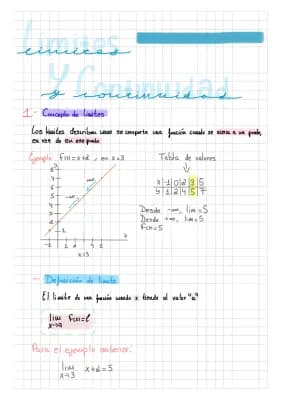 Límites
límites
Y Continuidad
y continuidad
1- Concepto de límites
Los límites describen como se comporta una función cuando se acerca a un punto,
en vez de en ese punto
Ejemplo f(x)=x+2, en x=3
Tabla de valores
x -1 0 2 3 5
y 1 2 4 5 7
Desde -∞, lim=5
Desde +∞, lim=5
F(x)=5
x=3
- Definición de límite
El límite de una función cuando x tiende al valor "a"
lim f(x)=l
x→a
Para el ejemplo anterior:
lim x+2=5
x→3